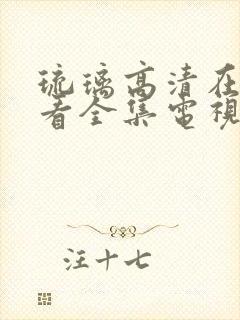 琉璃高清在
看全集電視
汪十七